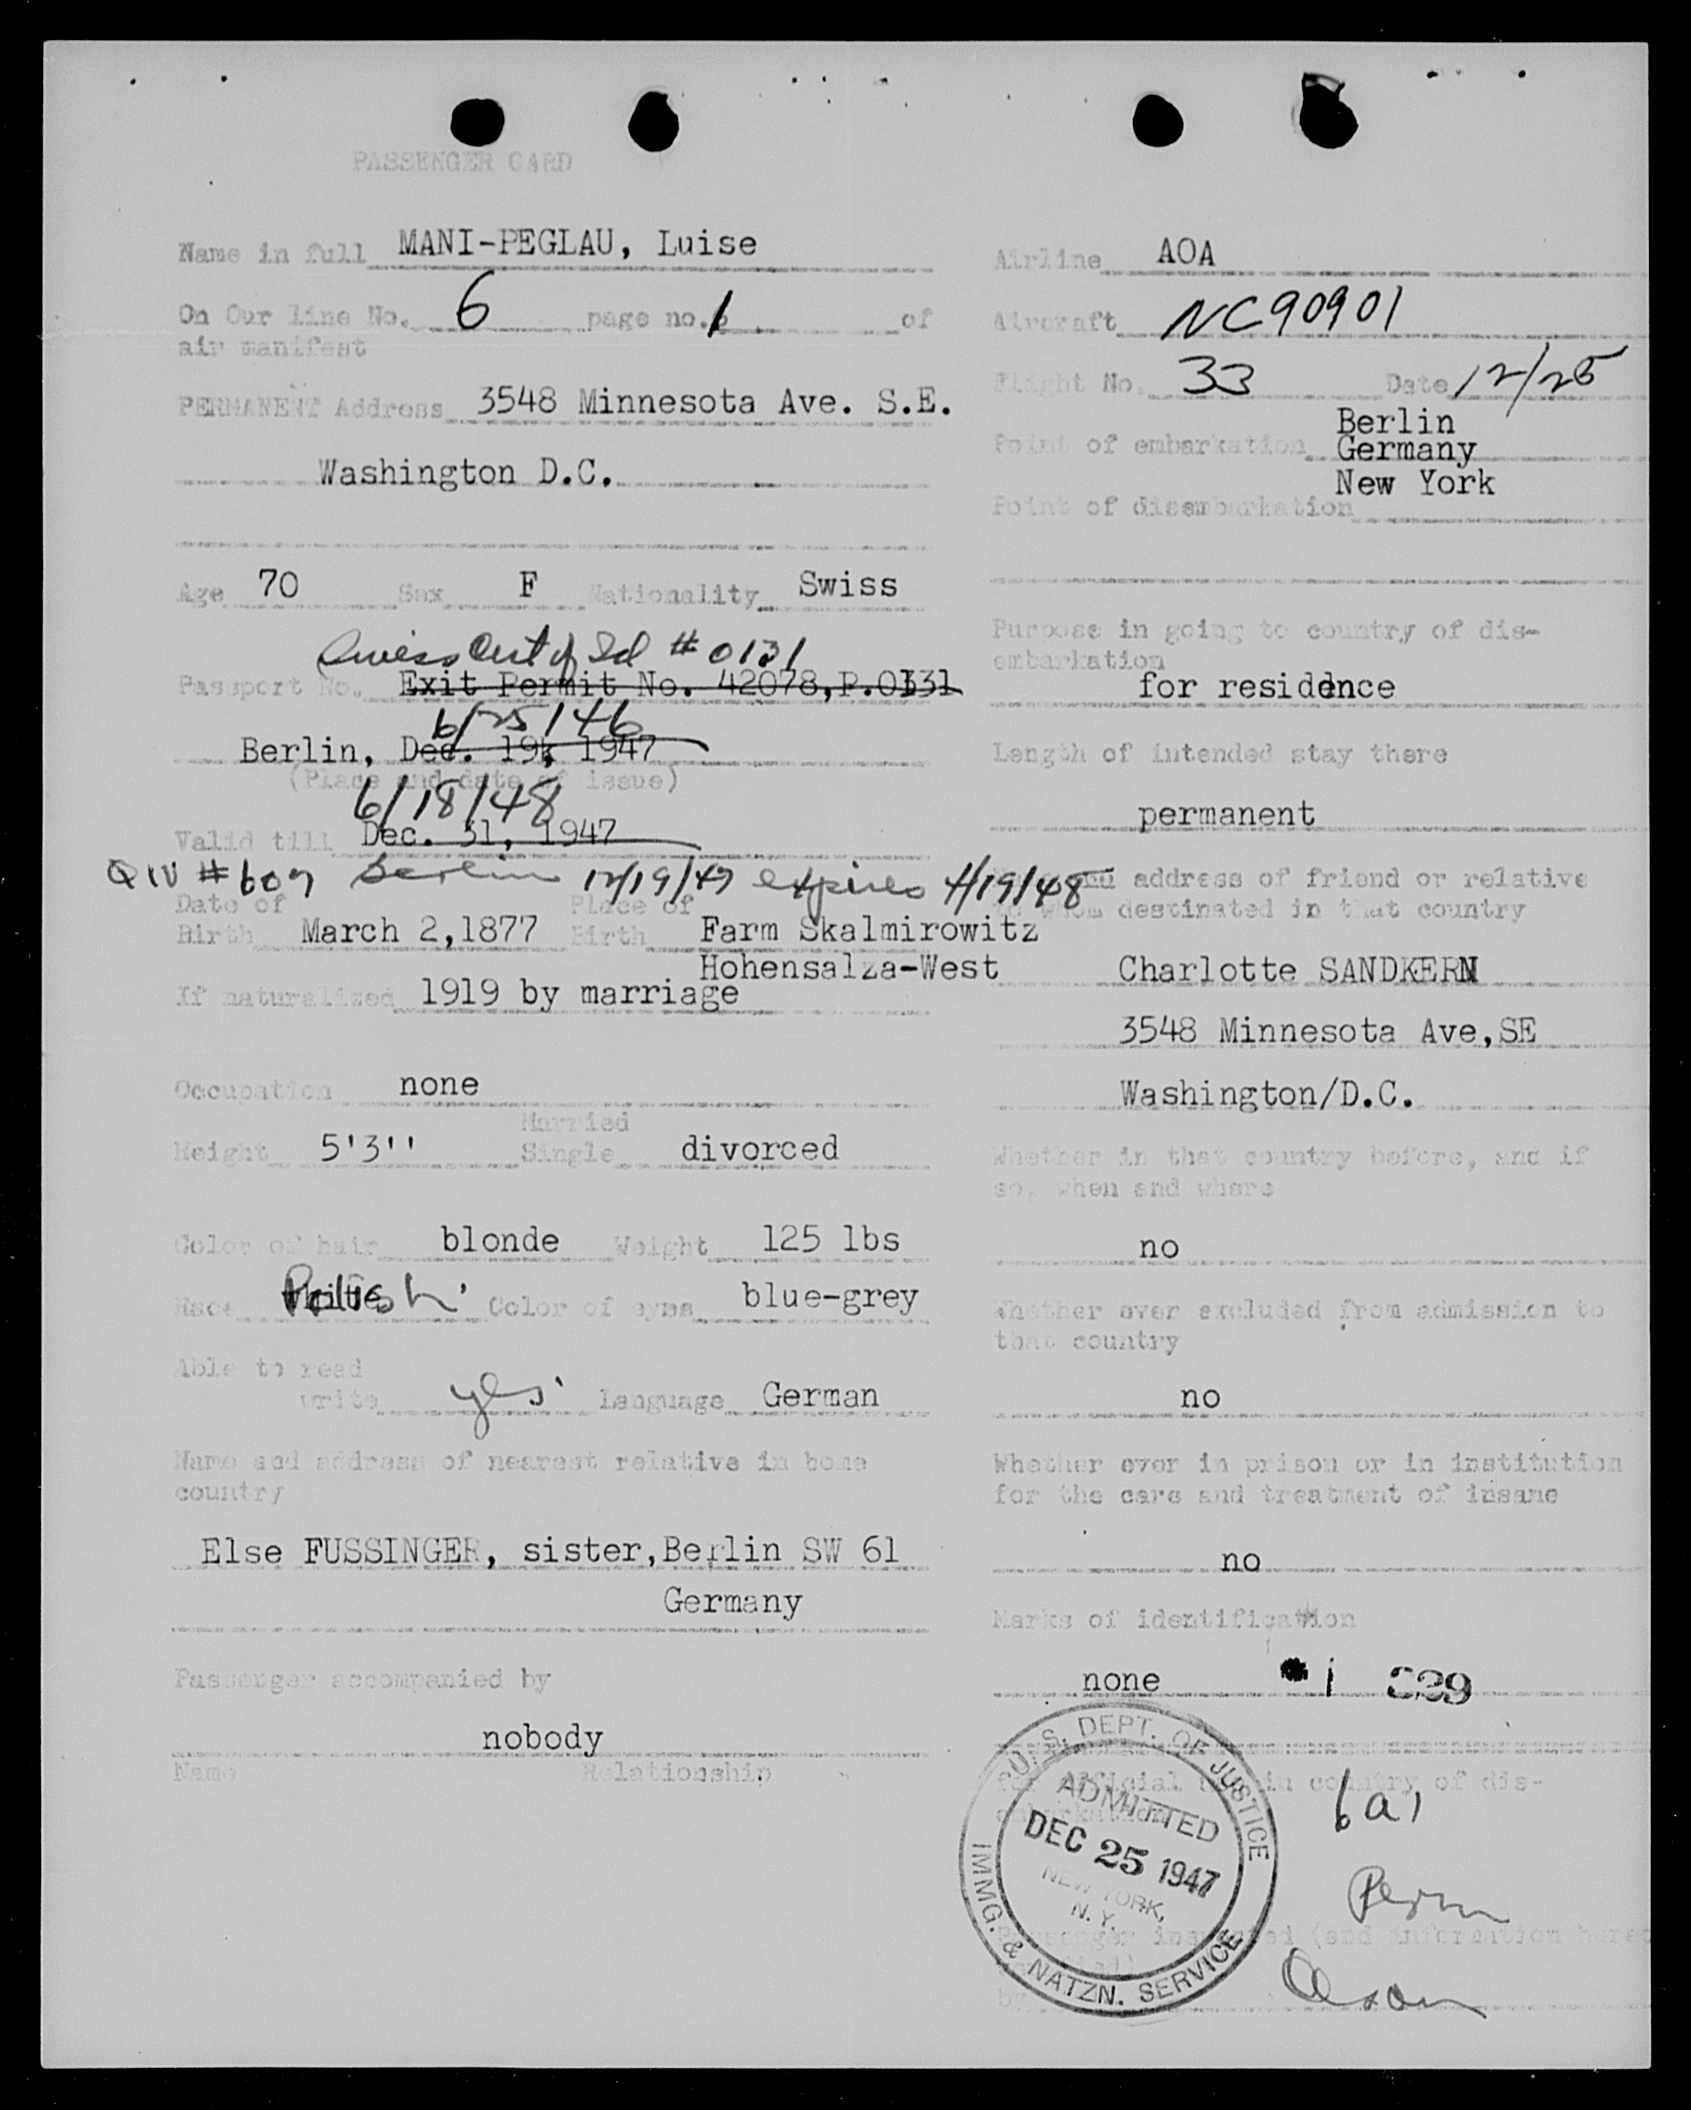 PASSENGER CARD
Name in full MANI-PEGLAU, Luise
On Our line No. 6 page no. 1 of
air manifest
PERMANENT Address 3548 Minnesota Ave. S.E.
Washington D.C.
Age 70 Sex F Nationality Swiss
Swiss Cert of Id # 0131
Passport No. Exit Permit No. 42078,P.0131
6/25/46
Berlin, Dec. 19, 1947
(Place and date of issue)
6/18/48
Valid till Dec. 31, 1947
QIV #607 Berlin 12/19/47 expires 4/19/48
Date of Place of
Birth March 2,1877 Birth Farm Skalmirowitz
Hohensalza-West
If naturalized 1919 by marriage
Occupation none
Married
Height 5'3'' Single divorced
Color of hair blonde Weight 125 lbs
Race Polish Color of eyes blue-grey
Able to read
write yes Language German
Name and address of nearest relative in home
country
Else FUSSINGER, sister,Berlin SW 61
Germany
Passenger accompanied by
nobody
Name Relationship
Airline AOA
Aircraft NC90901
Flight No. 33 Date 12/25
Berlin
Point of embarkation Germany
New York
Point of disembarkation
Purpose in going to country of dis-
embarkation
for residence
Length of intended stay there
permanent
and address of friend or relative
to whom destinated in that country
Charlotte SANDKERN
3548 Minnesota Ave,SE
Washington/D.C.
Whether in that country before, and if
so, when and where
no
Whether ever excluded from admission to
that country
no
Whether ever in prison or in institution
for the care and treatment of insane
no
Marks of identification
none 1 329
for official use in country of dis-
embarkation
6a1
Perm
Passenger inspected (and information hereon
by Olson
U. S. DEPT. OF JUSTICE
ADMITTED
DEC 25 1947
NEW YORK,
N. Y.
IMMG. & NATZN. SERVICE